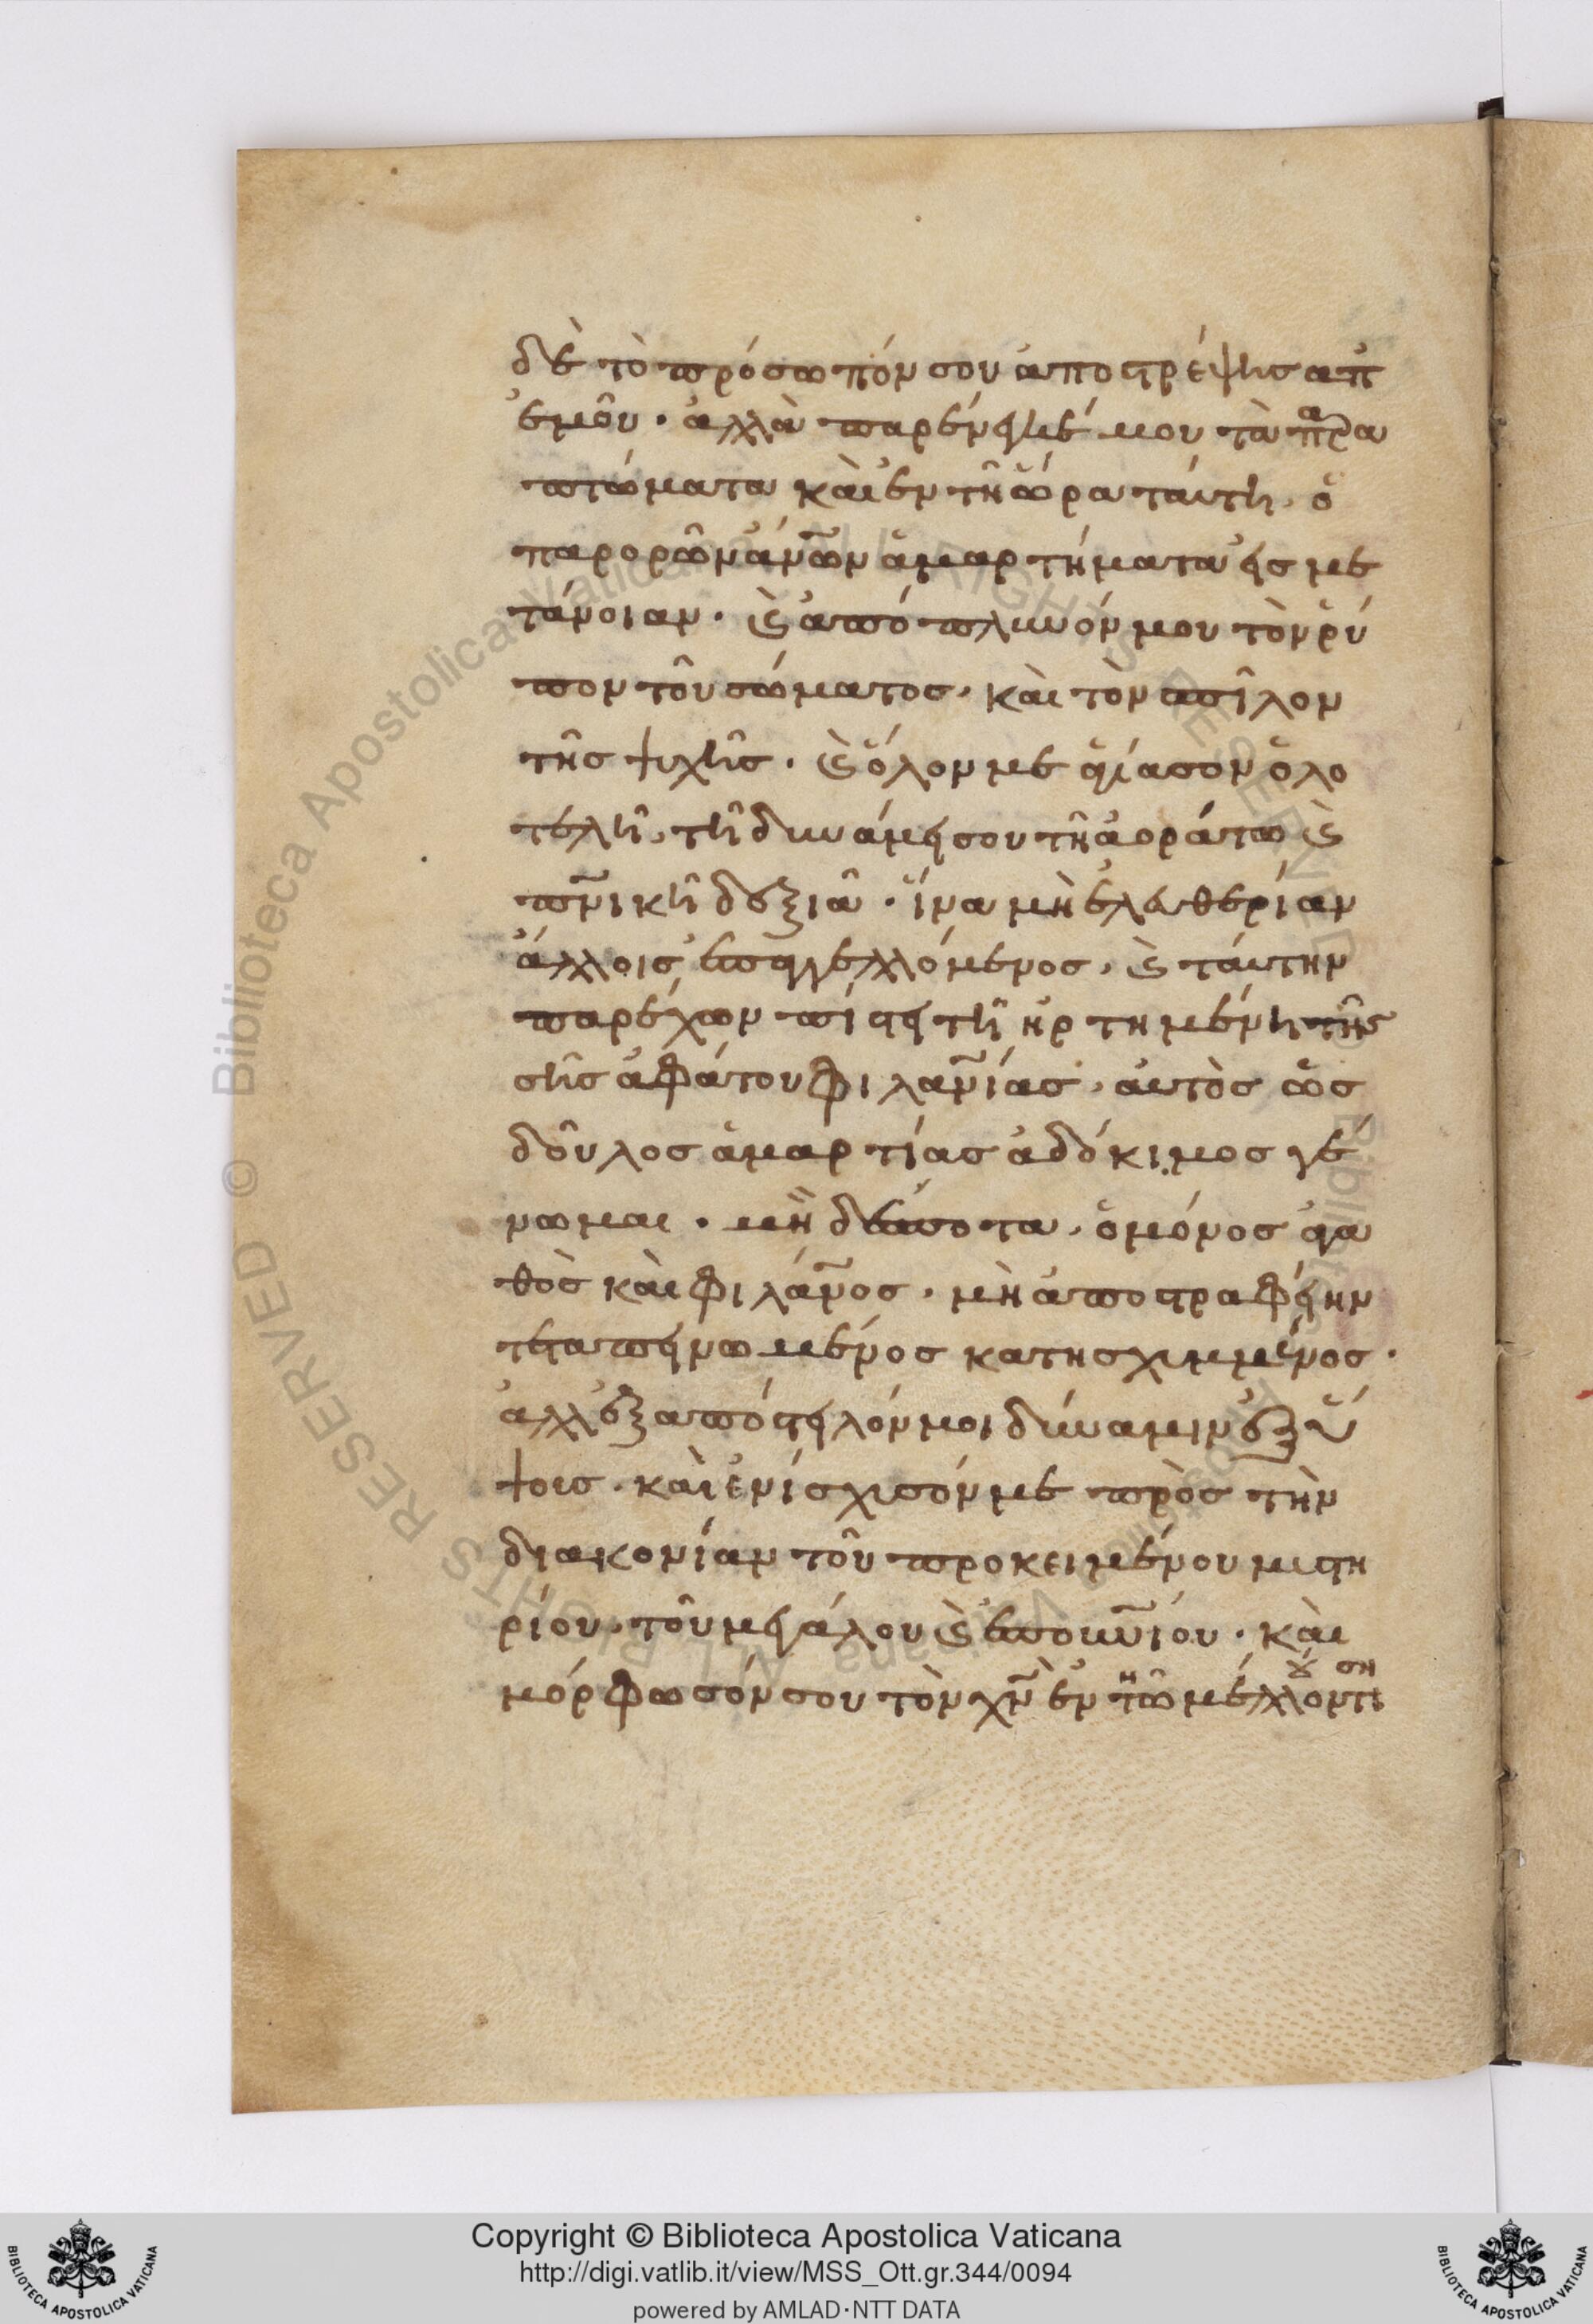 δὲ τὸ πρόσωπόν σου ἀποστρέψης ἀπ
ἐμοῦ · ἀλλὰ παρένεγκέ μου τὰ παρα
πτώματα καὶ ἐν τῆ ὥρα ταύτη, ὁ
παρορῶν ἀν̅ω̅ν ἁμαρτήματα εἰς με
τάνοιαν · καὶ ἀπόπλυνόν μου τὸν ῥύ
πον τοῦ σώματος, καὶ τὸν σπῖλον
τῆς ψυχῆς · καὶ ὅλον με ἁγίασον ὁλο
τελῆ, τῆ δυνάμει σου τῆ ἀοράτω καὶ
πν̅ικῆ δεξιᾶ · ἵνα μὴ ἐλευθερίαν
ἄλλοις ἐπαγγελλόμενος, καὶ ταύτην
παρέχων πίστει τῆ ἠρτημένη τῆς
σῆς ἀφάτου φιλαν̅ίας, αὐτὸς ὡς
δοῦλος ἁμαρτίας ἀδόκιμος γέ
νωμαι · μὴ δέσποτα, ὁ μόνος ἀγα
θὸς καὶ φιλάν̅ος, μὴ ἀποστραφείην
τεταπεινωμένος κατησχυμμένος ·
ἀλλ ἐξαπόστειλόν μοι δύναμιν ἐξ ὕ
ψους · καὶ ἐνίσχυσόν με πρὸς τὴν
διακονίαν τοῦ προκειμένου μυστη
ρίου, τοῦ μεγάλου καὶ ἐπουν̅ίου · καὶ
μόρφωσόν σου τὸν χν̅ ἐν τῶ μέλλοντι